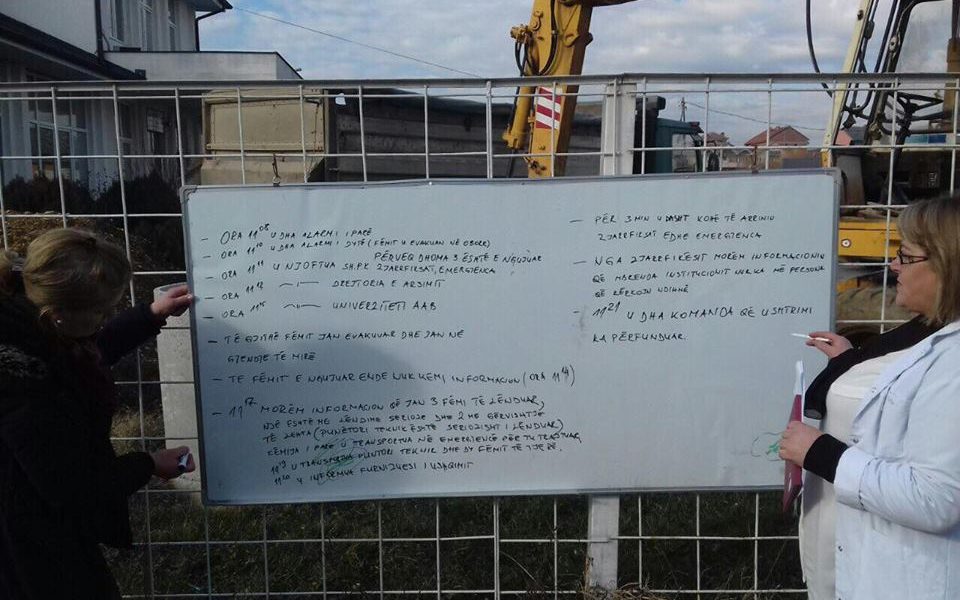 - ORA 11 08 U DHA ALARMI I PARË
- ORA 11 10 U DHA ALARMI I DYTË (FËMIT U EVAKUAN NË OBORR)
PËRVEQ DHOMA 3 ËSHTË E NGUJUAR
- ORA 11 11 U NJOFTUA SH.P.K ZJARRFIKSAT, EMERGJENCA
- ORA 11 12 -"- DREJTORIA E ARSIMIT
- ORA 11 15 -"- UNIVERZITETI AAB
- TË GJITHË FËMIT JAN EVAKUUAR DHE JAN NË
GJENDJE TË MIRË
- TE FËMIT E NGUJUAR ENDE NUK KEMI INFORMACION (ORA 11 14)
- 11 17 MORËM INFORMACION QË JAN 3 FËMI TË LËNDUAR,
NJË ËSHTË ME LËNDIME SERIOZE DHE 2 ME GËRVISHTJE
TË LEHTA (PUNËTORI TEKNIK ËSHTË SERIOZISHT I LËNDUAR)
FËMIJA I PARË U TRANSPORTUA NË EMERGJENCË PËR TU TRAJTUAR,
11 19 U TRANSPORTUA PUNTORI TEKNIK DHE DY FËMIT TË TJERË.
11 20 U INFORMUA FURNIZUESI I USHQIMIT
- PËR 3 MIN U DASHT KOHË TË ARRININ
ZJARRFIKSAT EDHE EMERGJENCA
- NGA ZJARRFIKËSIT MORËM INFORMACIONIN
QË MBRENDA INSTITUCIONIT NUK KA MË PERSONA
QË KËRKOJN NDIHMË
- 11 21 U DHA KOMANDA QË USHTRIMI
KA PËRFUNDUAR.